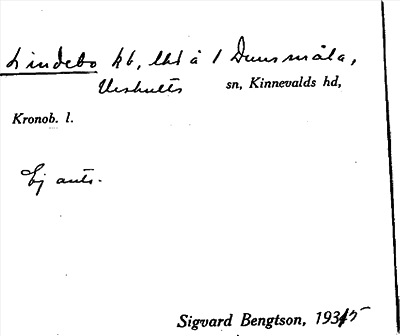 Lindebo hb, lht å 1 Dunsmåla,
Urshults sn, Kinnevalds hd,
Kronob. l.
Ej ants.
Sigvard Bengtson, 1935